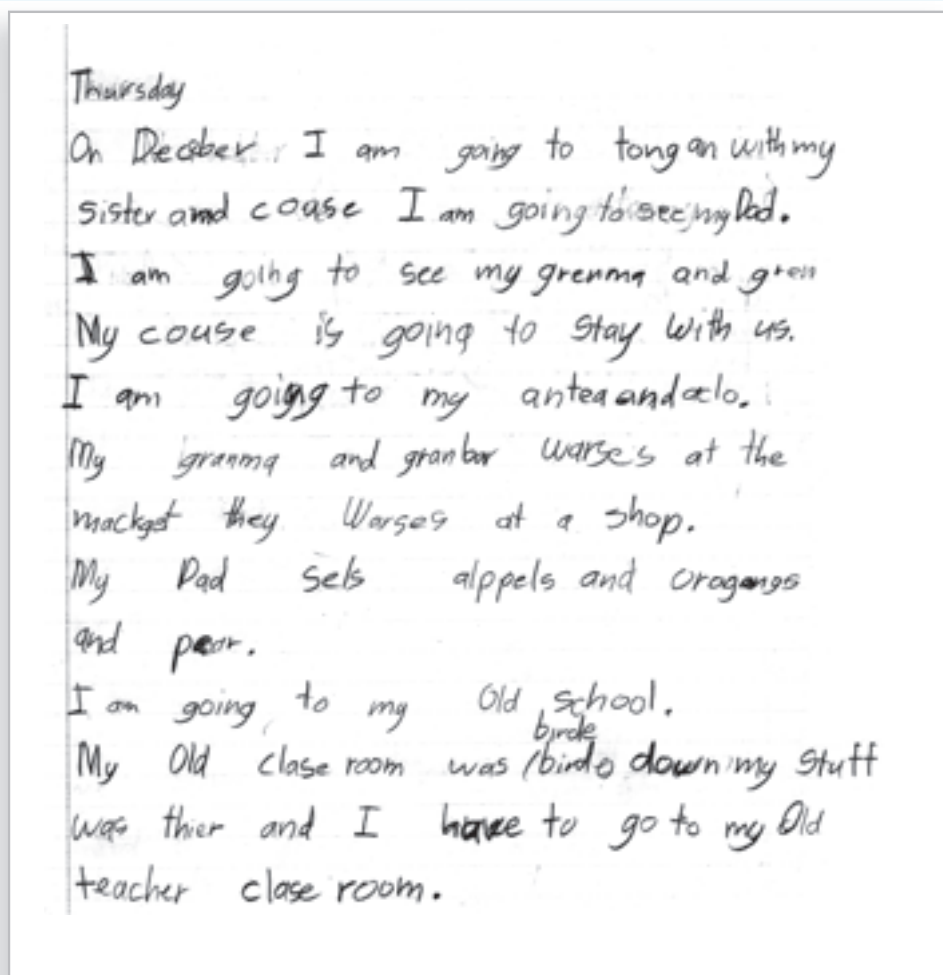 Thursday
On Decober I am going to tongan with my
sister and couase I am going to see my Dad.
I am going to see my grenma and gren
My couse is going to stay with us.
I am going to my antea and aclo.
My granma and granbar warses at the
mackget they Warses at a shop.
My Dad sels alppels and oragangs
and pear.
I am going to my Old school.
birde
My Old clase room was birde down my Stuff
was thier and I have to go to my Old
teacher clase room.